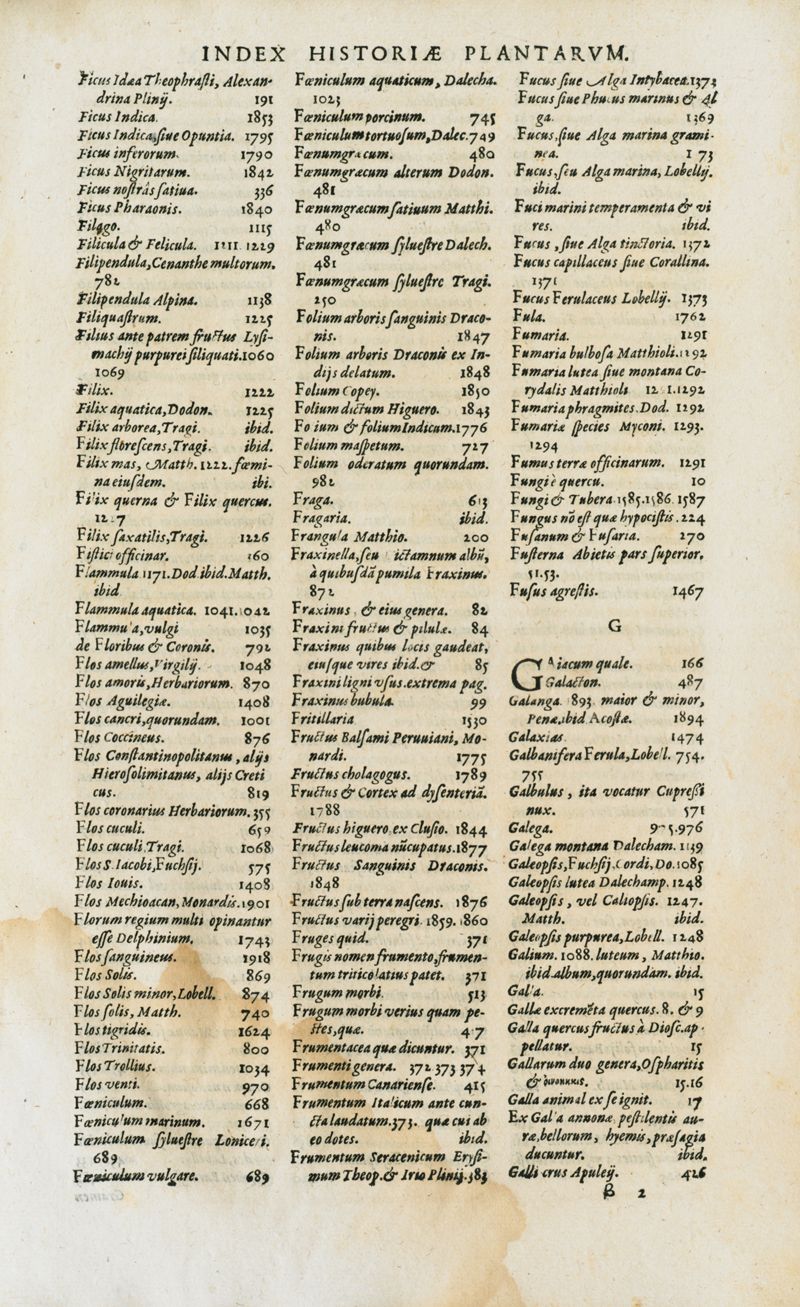 INDEX HISTORIÆ PLANTARVM.
Ficus Idæa Theophrasti, Alexan-
drina Plinij. 191
Ficus Indica. 1853
Ficus Indica, siue Opuntia. 1795
Ficus inferorum. 1790
Ficus Nigritarum. 1842
Ficus nostrás satiua. 336
Ficus Pharaonis. 1840
Filago. 1115
Filicula & Felicula. 1111 1229
Filipendula, Cenanthe multorum.
782
Filipendula Alpina. 1138
Filiquastrum. 1225
Filius ante patrem fructus Lysi-
machij purpurei siliquati. 1060
1069
Filix. 1222
Filix aquatica, Dodon. 1225
Filix arborea, Tragi. ibid.
Filix florescens, Tragi. ibid.
Filix mas, Matth. 1222. fœmi-
na eiusdem. ibi.
Filix querna & Filix quercus.
12 7
Filix saxatilis, Tragi. 1226
Fistici officinar. 160
Flammula 1171. Dod ibid. Matth.
ibid
Flammula aquatica. 1041. 1042
Flammu'a, vulgi 1035
de Floribus & Coronis. 792
Flos amellus, Virgilij. 1048
Flos amoris, Herbariorum. 870
Flos Aguilegiæ. 1408
Flos cancri, quorundam. 1001
Flos Coccineus. 876
Flos Constantinopolitanus, alijs
Hierosolimitanus, alijs Creti
cus. 819
Flos coronarius Herbariorum. 355
Flos cuculi. 659
Flos cuculi Tragi. 1068
Flos S. Iacobi, Fuchsij. 575
Flos Iouis. 1408
Flos Mechioacan, Monardis. 1901
Florum regium multi opinantur
esse Delphinium. 1743
Flos sanguineus. 1918
Flos Solis. 869
Flos Solis minor, Lobell. 874
Flos solis, Matth. 740
Flos tigridis. 1624
Flos Trinitatis. 800
Flos Trollius. 1034
Flos venti. 970
Fœniculum. 668
Fœnicu'um marinum. 1671
Fœniculum syluestre Loniceri.
689
Fœniculum vulgare. 689
Fœniculum aquaticum, Dalecha.
1023
Fœniculum porcinum. 745
Fœniculum tortuosum, Dalec. 749
Fœnumgræcum. 480
Fœnumgræcum alterum Dodon.
481
Fœnumgræcum satiuum Matthi.
480
Fœnumgræcum syluestre Dalech.
481
Fœnumgræcum syluestre Tragi.
250
Folium arboris sanguinis Draco-
nis. 1847
Folium arboris Draconis ex In-
dijs delatum. 1848
Folium Copey. 1850
Folium dictum Higuero. 1843
Fo ium & folium Indicum. 1776
Folium maspetum. 727
Folium odoratum quorundam.
982
Fraga. 613
Fragaria. ibid.
Frangula Matthio. 200
Fraxinella, seu ictamnum albū,
à quibusdā pumila Fraxinus.
872
Fraxinus, & eius genera. 82
Fraxini fructus & pilulæ. 84
Fraxinus quibus locis gaudeat,
eiusque vires ibid. & 85
Fraxini ligni vsus. extrema pag.
Fraxinus bubula. 99
Fritillaria 1530
Fructus Balsami Peruuiani, Mo-
nardi. 1775
Fructus cholagogus. 1789
Fructus & Cortex ad dysenteriā.
1788
Fructus higuero, ex Clusio. 1844
Fructus leucoma nūcupatus. 1877
Fructus Sanguinis Draconis.
1848
Fructus sub terra nascens. 1876
Fructus varij peregri. 1859. 1860
Fruges quid. 371
Frugis nomen frumento, frumen-
tum tritico latius patet. 371
Frugum morbi. 513
Frugum morbi verius quam pe-
stes, quæ. 4 7
Frumentacea quæ dicuntur. 371
Frumenti genera. 372 373 374
Frumentum Canariense. 415
Frumentum Italicum ante cun-
cta laudatum. 373. qua cui ab
eo dotes. ibid.
Frumentum Seracenicum Erysi-
mum Theop. & Irio Plinij. 383
Fucus siue Alga Intybacea. 1373
Fucus siue Phucus marinus & Al
ga. 1369
Fucus, siue Alga marina grami-
nea. 1 73
Fucus, seu Alga marina, Lobellij.
ibid.
Fuci marini temperamenta & vi
res. ibid.
Fucus, siue Alga tinctoria. 1372
Fucus capillaceus siue Corallina.
1371
Fucus Ferulaceus Lobellij. 1373
Fula. 1762
Fumaria. 1291
Fumaria bulbosa Matthioli. 1292
Fumaria lutea siue montana Co-
rydalis Matthioli 12 1. 1292
Fumaria phragmites. Dod. 1292
Fumariæ species Myconi. 1293.
1294
Fumus terræ officinarum. 1291
Fungi è quercu. 10
Fungi & Tubera 1585. 1586. 1587
Fungus nō est quæ hypocistis. 224
Fusanum & Fusaria. 270
Fusterna Abietis pars superior.
51. 53.
Fusus agrestis. 1467
G
GAiacum quale. 166
Galacton. 487
Galanga. 893 maior & minor,
Penæ, ibid Acostæ. 1894
Galaxias 1474
Galbanifera Ferula, Lobe'l. 754.
755
Galbulus, ita vocatur Cupressi
nux. 571
Galega. 975. 976
Galega montana Dalecham. 1139
Galeopsis, Fuchsij. Cordi, Do. 1085
Galeopsis lutea Dalechamp. 1248
Galeopsis, vel Caliopsis. 1247.
Matth. ibid.
Galeopsis purpurea, Lobell. 1248
Galium. 1088. luteum, Matthio.
ibid. album, quorundam. ibid.
Gal'a. 15
Gallæ excremēta quercus. 8. & 9
Galla quercus fructus à Diosc. ap-
pellatur. 15
Gallarum duo genera, Ospharitis
& 15. 16
Galla animal ex se ignit. 17
Ex Gal'a annonæ pestilentis au-
ræ, bellorum, hyemis, præsagia
ducuntur. ibid.
Galli crus Apuleij. 426
ß 2